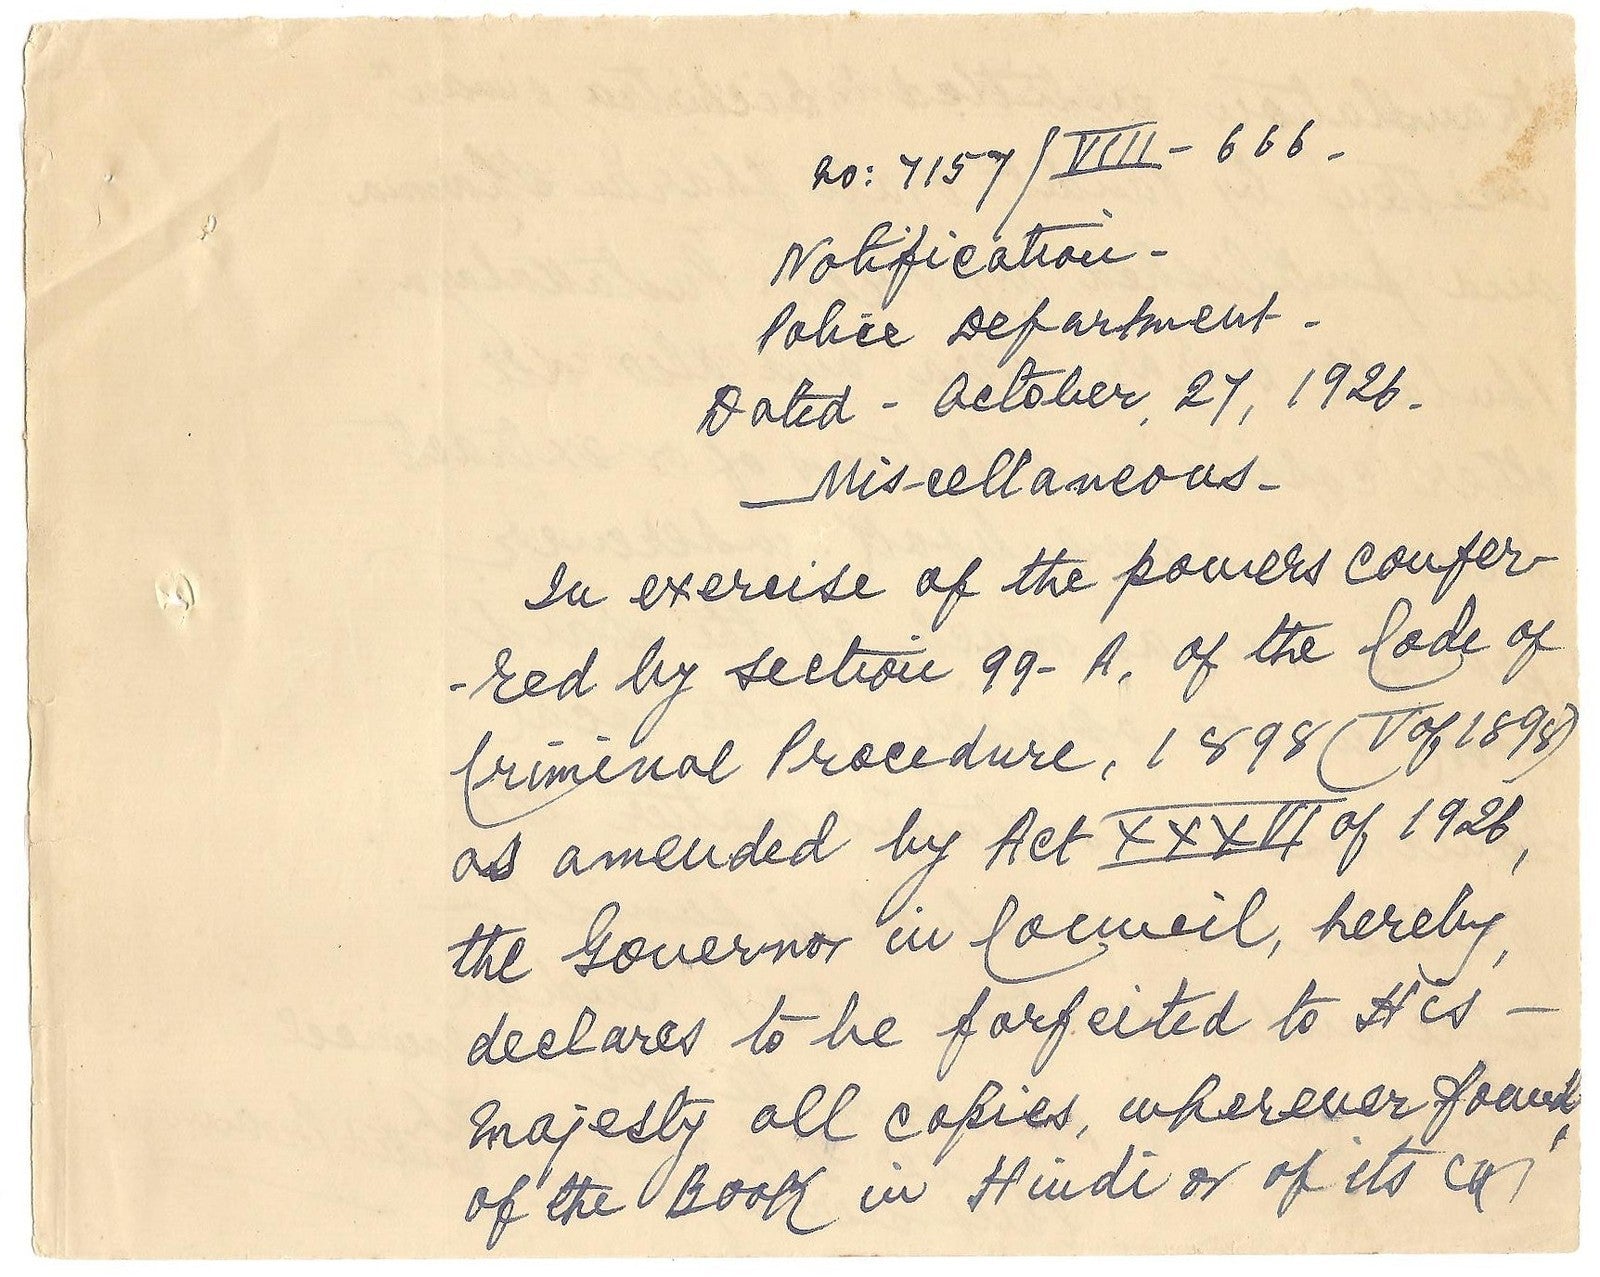 No: 7157/VIII - 666 -
Notification -
Police Department -
Dated - October, 27, 1926.
Miscellaneous -
In exercise of the powers confer-
-red by section 99-A, of the Code of
Criminal Procedure, 1898 (V of 1898)
as amended by Act XXXVI of 1926,
the Governor in Council, hereby,
declares to be forfeited to His -
Majesty all copies, wherever found,
of the Book in Hindi or of its